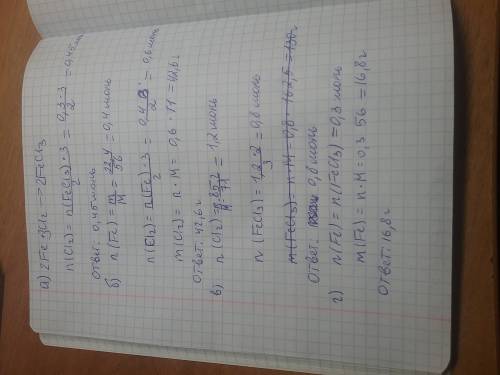 а) 2Fe+3Cl₂ → 2FeCl₃
n(Cl₂) = n(FeCl₃)·3/2 = 0,3·3/2 = 0,45моль
Ответ: 0,45моль
б) n(Fe) = m/M = 22,4/56 = 0,4моль
n(Cl₂) = n(Fe)·3/2 = 0,4·3/2 = 0,6моль
m(Cl₂) = n·M = 0,6·71 = 42,6г
Ответ: 42,6г
в) n(Cl₂) = 85,2/71 = 1,2моль
n(FeCl₃) = 1,2·2/3 = 0,8моль
m(FeCl₃) = n·M = 0,8·162,5 = 130г
Ответ: 0,8моль
г) n(Fe) = n(FeCl₃) = 0,3моль
m(Fe) = n·M = 0,3 56 = 16,8г
Ответ: 16,8г